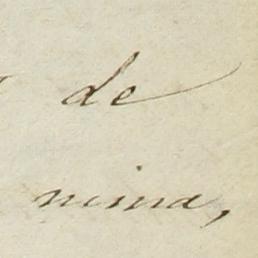 de
mina,